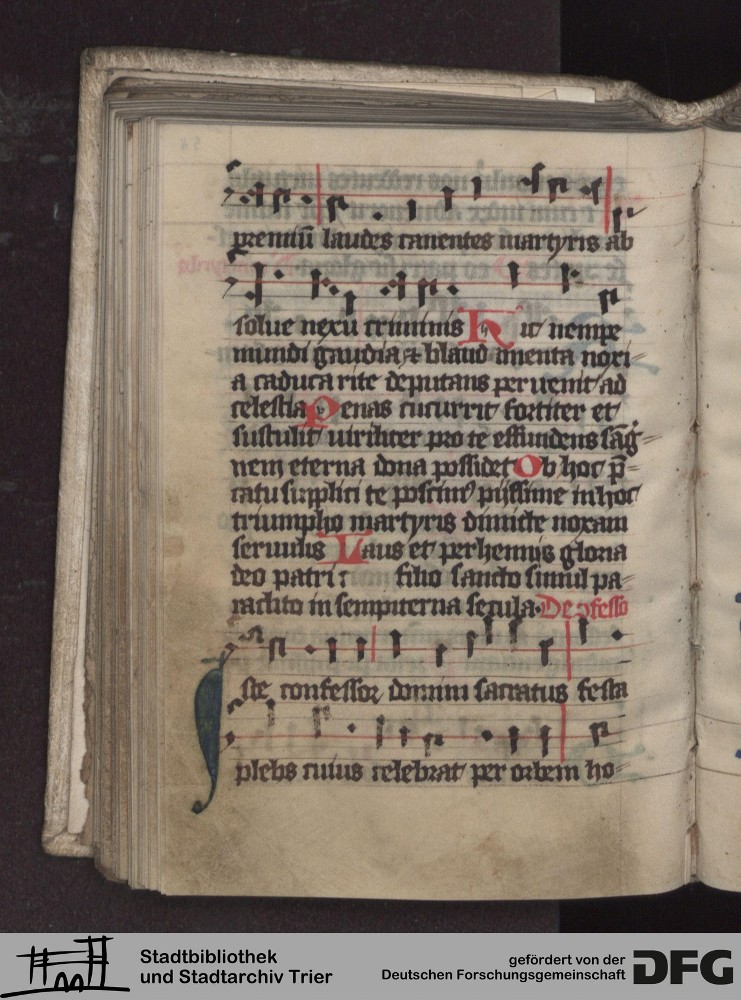 premiū laudes canentes martyris ab
solue nexu criminis Hic nempe
mundi gaudia & bland imenta noxi-
a caduca rite deputans peruenit ad
celestia Penas cucurrit fortiter et
sustulit uiriliter pro te effundens sāg-
nem eterna dona possidet Ob hoc p̄-
catu supplici te poscim⁹ pijssime in hoc
triumpho martyris dimitte noxam
seruulis Laus et perhennis gloria
deo patri et filio sancto simul pa-
raclito in sempiterna secula. De ɔfesso
Iste confessor domini sacratus festa
plebs cuius celebrat per orbem ho-
Stadtbibliothek
und Stadtarchiv Trier
gefördert von der
Deutschen Forschungsgemeinschaft
DFG